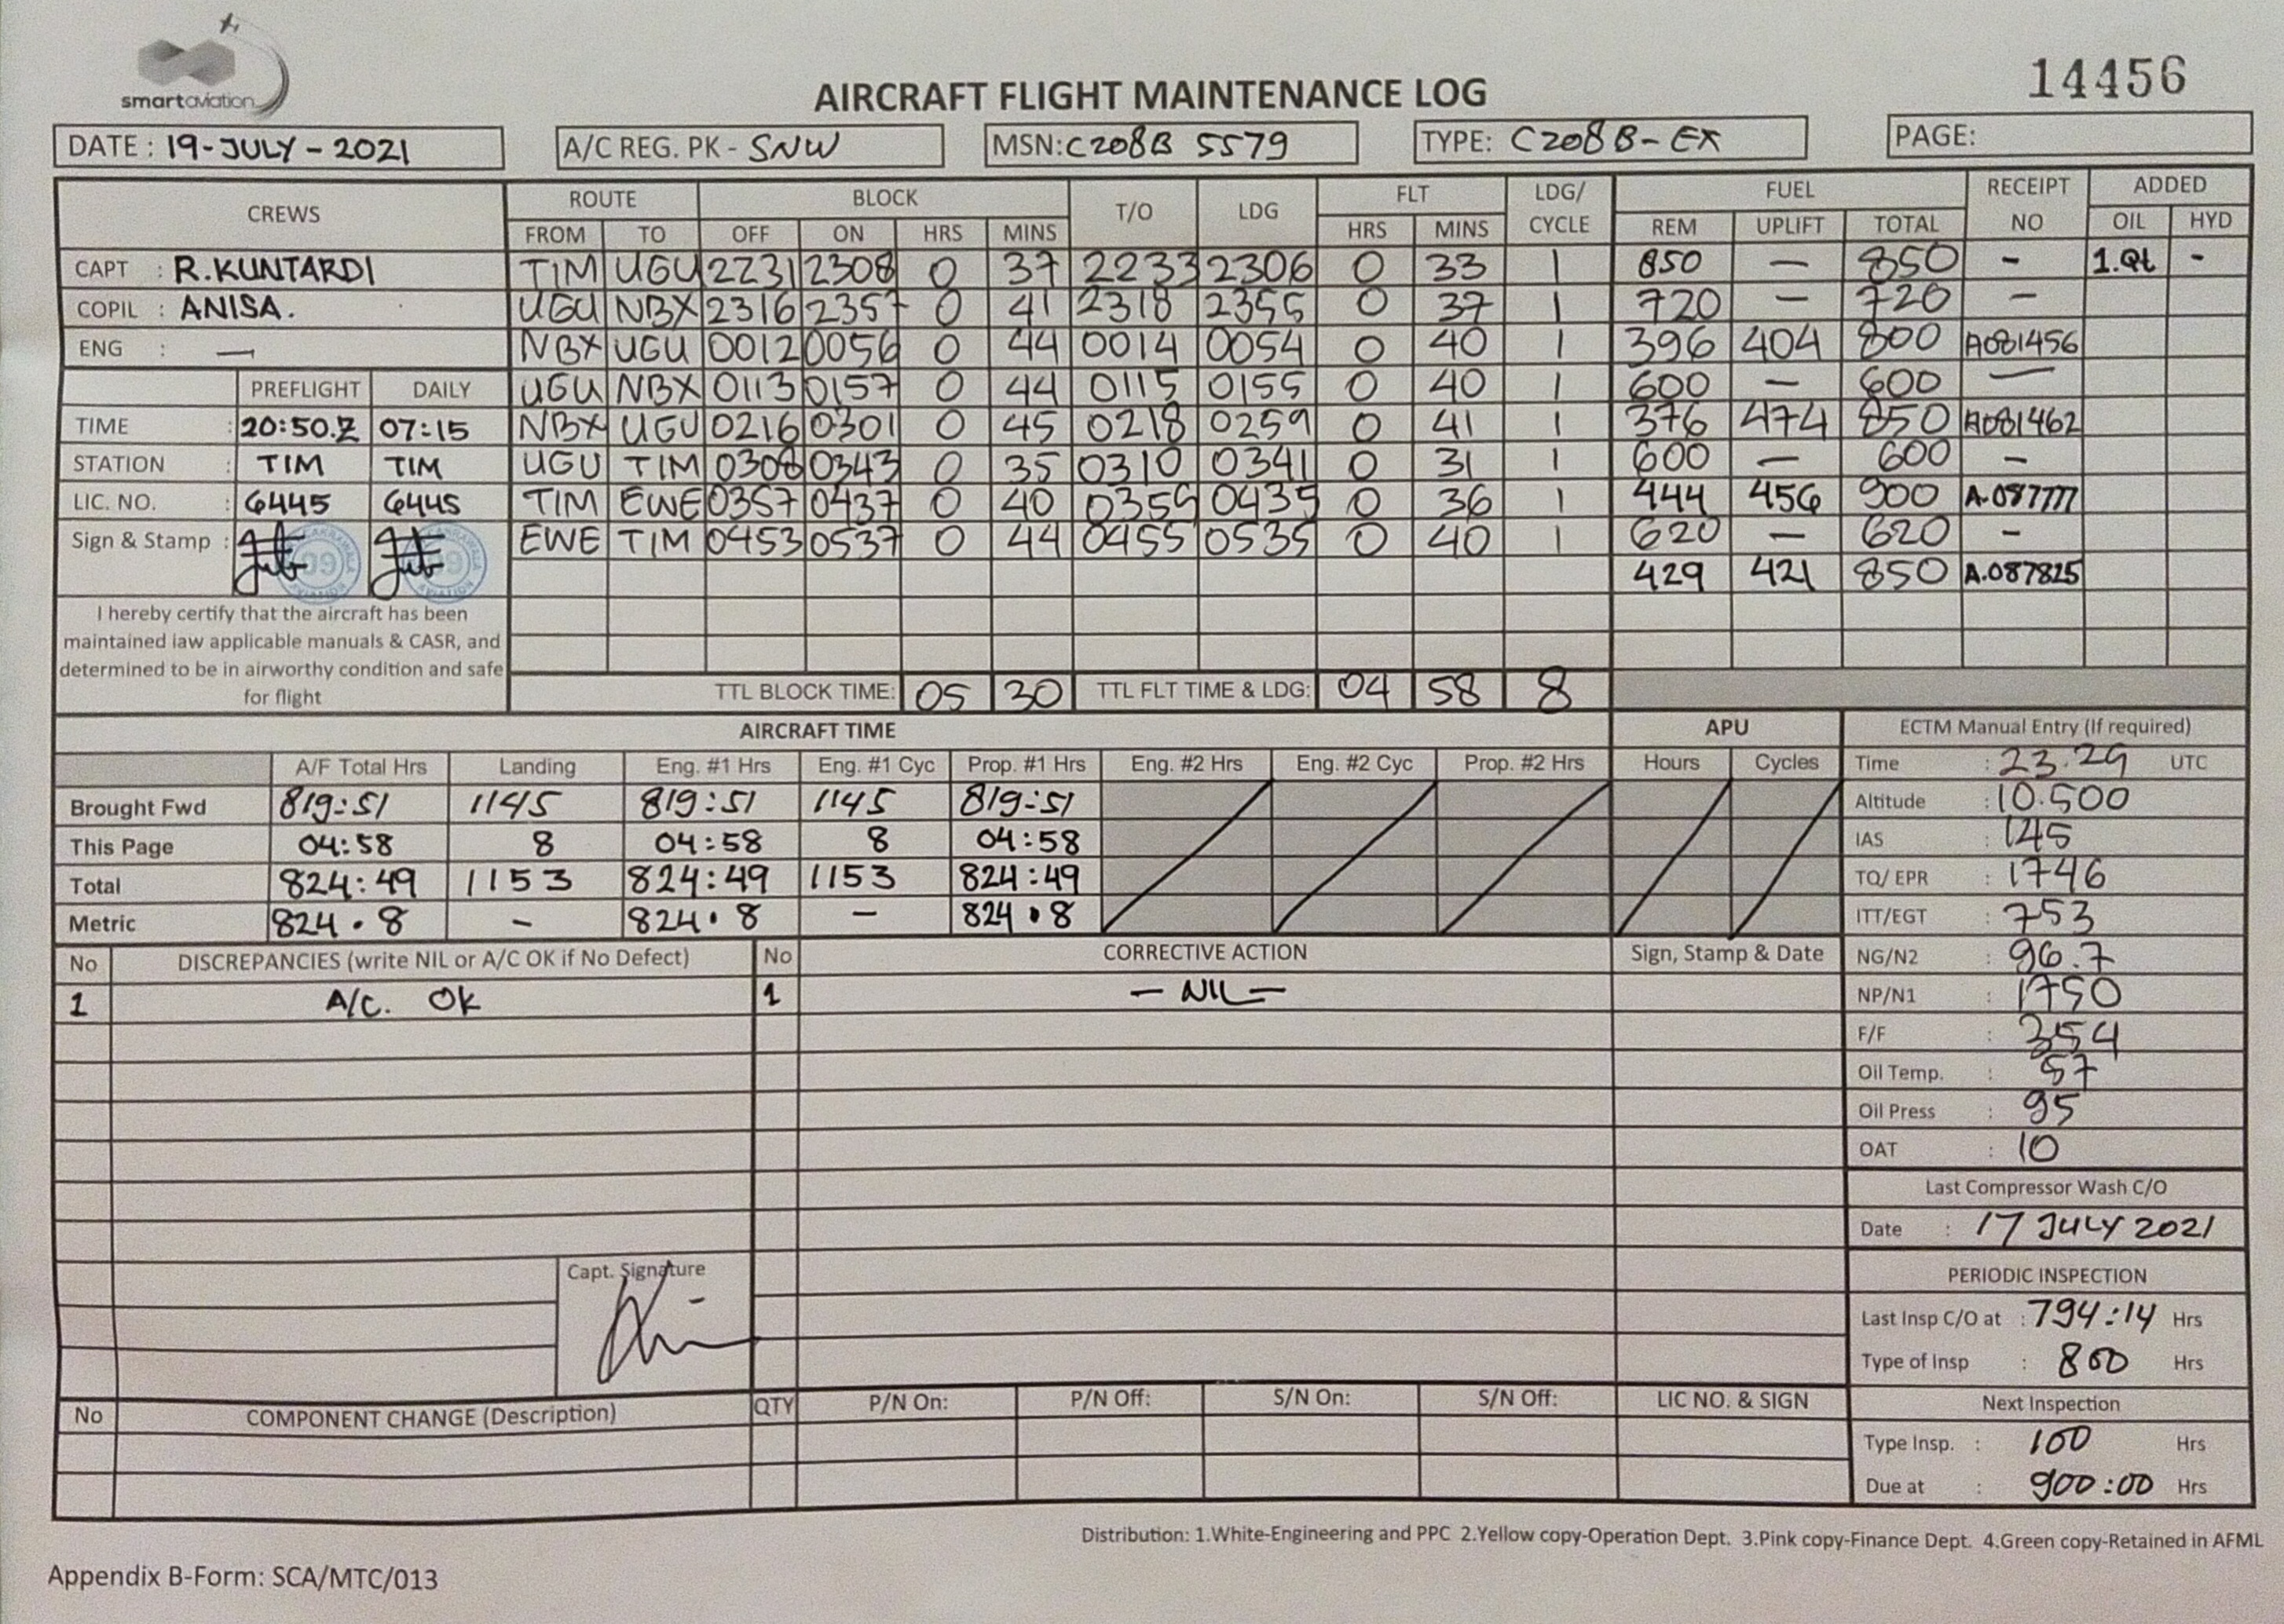 smartaviation
14456
AIRCRAFT FLIGHT MAINTENANCE LOG
DATE : 19-JULY-2021 A/C REG. PK - SNW MSN: C208B 5579 TYPE: C208B-EX PAGE:
CREWS ROUTE BLOCK T/O LDG FLT LDG/ CYCLE FUEL RECEIPT NO ADDED
FROM TO OFF ON HRS MINS HRS MINS REM UPLIFT TOTAL OIL HYD
CAPT : R.KUNTARDI TIM UGU 2231 2308 0 37 2233 2306 0 33 1 850 — 850 - 1.Qt -
COPIL : ANISA. UGU NBX 2316 2357 0 41 2318 2355 0 37 1 720 — 720 —
ENG : — NBX UGU 0012 0056 0 44 0014 0054 0 40 1 396 404 800 A081456
PREFLIGHT DAILY UGU NBX 0113 0157 0 44 0115 0155 0 40 1 600 — 600 —
TIME : 20:50.Z 07:15 NBX UGU 0216 0301 0 45 0218 0259 0 41 1 376 474 850 A081462
STATION : TIM TIM UGU TIM 0308 0343 0 35 0310 0341 0 31 1 600 — 600 -
LIC. NO. : 6445 6445 TIM EWE 0357 0437 0 40 0359 0435 0 36 1 444 456 900 A.087777
Sign & Stamp : EWE TIM 0453 0537 0 44 0455 0535 0 40 1 620 — 620 -
429 421 850 A.087825
I hereby certify that the aircraft has been
maintained iaw applicable manuals & CASR, and
determined to be in airworthy condition and safe
for flight
TTL BLOCK TIME: 05 30 TTL FLT TIME & LDG: 04 58 8
AIRCRAFT TIME APU ECTM Manual Entry (If required)
A/F Total Hrs Landing Eng. #1 Hrs Eng. #1 Cyc Prop. #1 Hrs Eng. #2 Hrs Eng. #2 Cyc Prop. #2 Hrs Hours Cycles Time : 23.29 UTC
Brought Fwd 819:51 1145 819:51 1145 819:51 Altitude : 10.500
This Page 04:58 8 04:58 8 04:58 IAS : 145
Total 824:49 1153 824:49 1153 824:49 TQ/ EPR : 1746
Metric 824.8 - 824.8 - 824.8 ITT/EGT : 753
No DISCREPANCIES (write NIL or A/C OK if No Defect) No CORRECTIVE ACTION Sign, Stamp & Date NG/N2 : 96.7
1 A/C. OK 1 — NIL — NP/N1 : 1750
F/F : 354
Oil Temp. : 57
Oil Press : 95
OAT : 10
Last Compressor Wash C/O
Date : 17 JULY 2021
Capt. Signature
PERIODIC INSPECTION
Last Insp C/O at : 794:14 Hrs
Type of Insp : 800 Hrs
No COMPONENT CHANGE (Description) QTY P/N On: P/N Off: S/N On: S/N Off: LIC NO. & SIGN
Next Inspection
Type Insp. : 100 Hrs
Due at : 900:00 Hrs
Distribution: 1.White-Engineering and PPC 2.Yellow copy-Operation Dept. 3.Pink copy-Finance Dept. 4.Green copy-Retained in AFML
Appendix B-Form: SCA/MTC/013